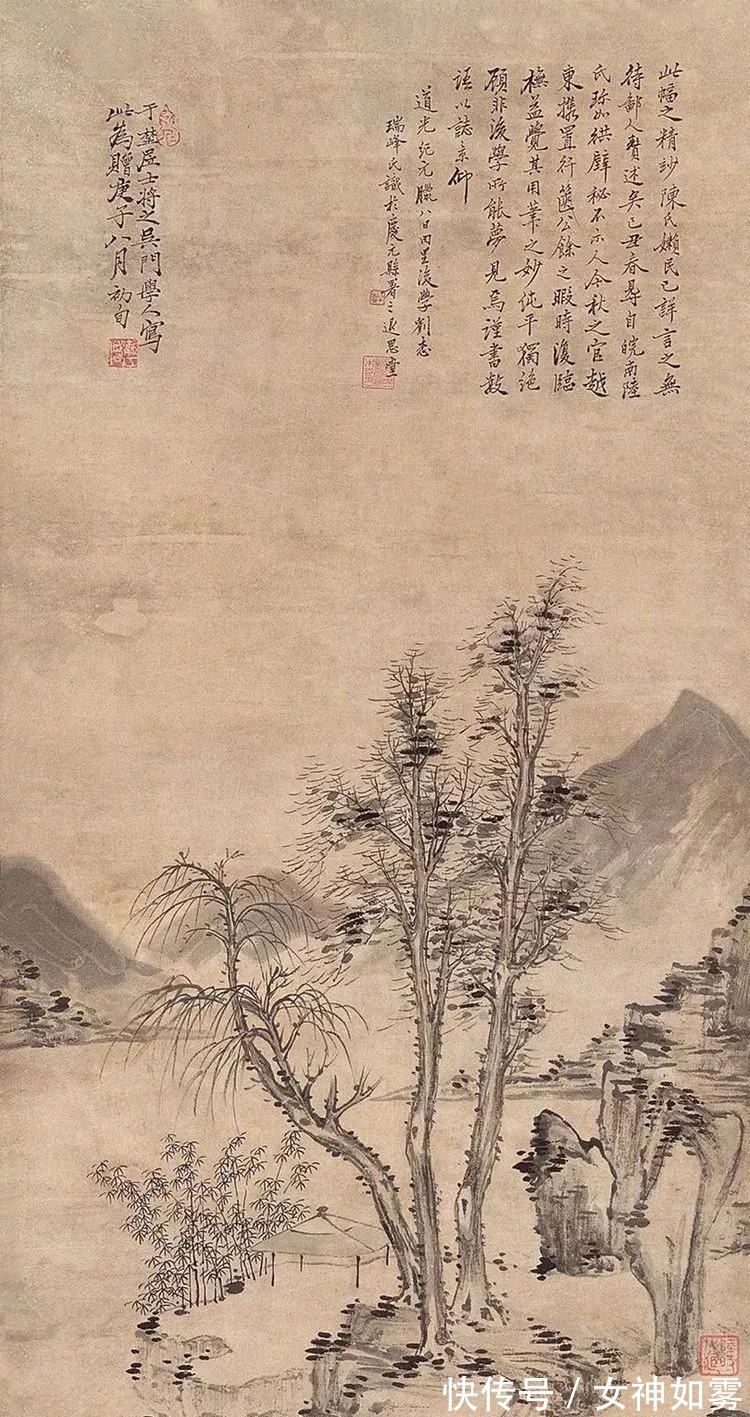 此幅之精妙陳氏嬾民已詳言之無
待鄙人贅述矣己丑春尋自皖南陸
氏珎如拱璧秘不示人今秋之官越
東攜置行篋公餘之暇時復臨
橅益覺其用筆之妙純乎獨詣
顧非後學所能夢見焉謹書數
語以誌景仰
道光紀元臘八日後學劉志
瑞峰氏識於慶元縣署之退思堂
于埜居士將之吳門學人寫
此為贈庚子八月初旬
快传号/女神如雾